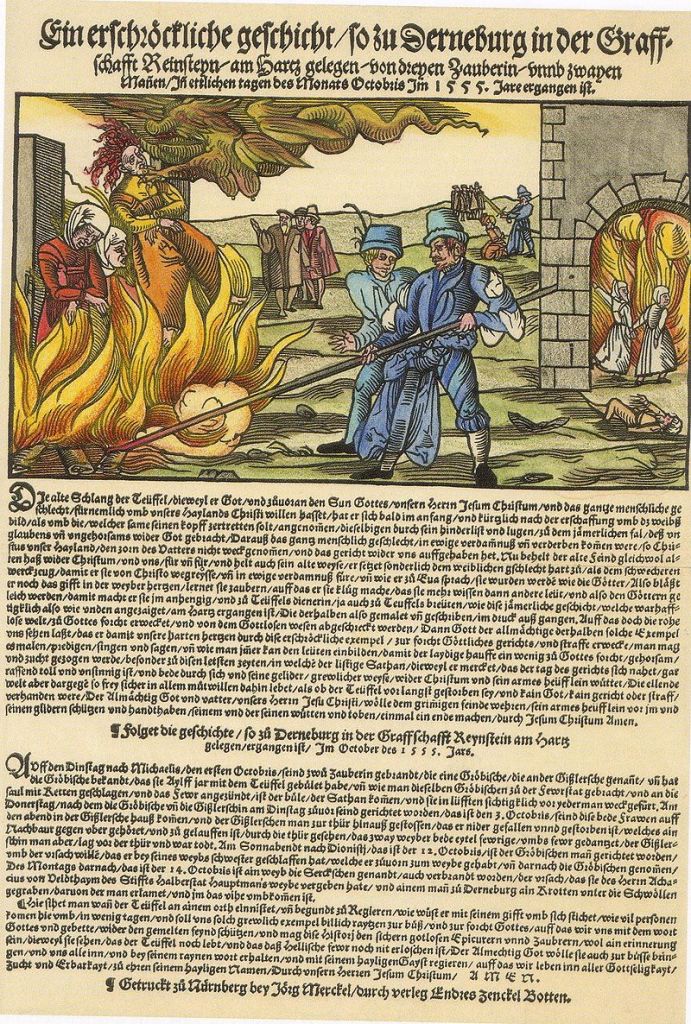 Ein erschröckliche geschicht/so zu Derneburg in der Graff-
schafft Reinsteyn/am Hartz gelegen/von dreyen Zauberin/vnnd zwayen
Mañen/Jn etlichen tagen des Monats Octobris Jm 1 5 5 5. Jare ergangen ist.
DJe alte Schlang der Teüffel/dieweyl er Got/vnd zůuoran den Sun Gottes/vnsern Herrn Jesum Christum/vnd das gantze menschliche ge
schlecht/fürnemlich vmb vnsers Haylands Christi willen hasset/hat er sich bald im anfang/vnd kürtzlich nach der erschaffung vmb dz weibß
bild/als vmb die/welcher same seinen kopff zertretten solt/angenomen/dieselbigen durch sein hinderlist vnd lugen/zů dem jämerlichen fal/deß vn
glaubens vñ vngehorsams wider Got gebracht/Darauß das gang menschlich geschlecht/in ewige verdamnuß vñ verderben komen were/so Chri
stus vnser Hayland/den zorn des Vatters nicht weck genomen/vnd das gericht wider vns auffgehaben het. Nu behelt der alte Feind gleichwol al
len haß wider Christum/vnd vns/für vñ für/vnd helt auch sein alte weyse/er setzt sonderlich dem weiblichen gschlecht hart zů/als dem schwechern
werckzeug/damit er sie von Christo wegreysse/vñ in ewige verdamnuß füre/vñ wie er zů Eua sprach/sie wurden werde wie die Götter/Also bläst
er noch das gifft in der weyber hertzen/lernet sie zaubern/auff das er sie klůg mache/das sie mehr wissen dann andere leüt/vnd also den Göttern ge
leich werden/damit macht er sie jm anhengig/vnd zů Teüffels dienerin/ja auch zů Teuffels breüten/wie dise jämerliche geschicht/welche warhaff-
tigklich also wie vnden angezaiget/am Hartz ergangen ist. Die derhalben also gemalet vñ geschriben/im druck auß gangen. Auff das doch die rohe
lose welt/zů Gottes forcht erwecket/vnd von dem Gottlosen wesen abgeschreckt werden/Dann Got der allmächtige derhalben solche Exempel
vns sehen laßt/das er damit vnsere harten hertzen durch dise erschröckliche exempel/zur forcht Göttliches gerichts/vnd straffe erwecke/man mag
es malen/predigen/singen vnd sagen/vñ wie man jmer kan den leüten einbilden/damit der laydige hauffe ein wenig zů Gottes forcht/gehorsam/
vnd zucht gezogen werde/besonder zů disen letsten zeyten/in welchē der listige Sathan/dieweyl er mercket/das der tag des gerichts sich nahet/gar
raffend toll vnd vnsinnig ist/vnd bede durch sich vnd seine gelider/grewlicher weyse/wider Christum vnd sein armes heüflein wüttet/Die ellende
welt aber dargegē so frey sicher in allem můtwillen dahin lebet/als ob der Teüffel vorlangst gestorben sey/vnd kain Got/kain gericht oder straff/
verhanden were/Der Almåchtig Got vnd vatter/vnsers Herrn Jesu Christi/wölle dem grimigen feinde wehren/sein armes heüflein vor jm vnd
seinen glidern schützen vnd handthaben/seinem vnd der seinen wütten vnd toben/einmal ein ende machen/durch Jesum Christum Amen.
¶ Folget die geschichte/so zů Derneburg in der Graffschafft Reynstein am Hartz
gelegen/ergangen ist/Jm October des 1 5 5 5. Jars.
AVff den Dinstag nach Michaelis/den ersten Octobris/seind zwů Zauberin gebrandt/die eine Gröbische/die ander Gißlersche genañt/vñ hat
die Gröbische bekandt/das sie Aylff jar mit dem Teüffel gebůlet habe/vñ wie man dieselben Gröbischen zů der Fewrstat gebracht/vnd an die
saul mit Ketten geschlagen/vnd das Fewr angezündt/ist der bůle/der Sathan komen/vnd sie in lüfften sichtigklich vor yederman weck gefürt. Am
Donerstag/nach dem die Gröbische vñ die Gißlerschin am Dinstag zůuor seind gerichtet worden/das ist den 3. Octobris/seind dise bede Frawen auff
den abend in der Gißlersche hauß komen/vnd der Gißlerschen man zur thür hinauß gestossen/das er nider gefallen vnnd gestorben ist/welches ain
Nachbaur gegen vber gehöret/vnd zů gelauffen ist/durch die thür gesehen/das zway weyber bede eytel fewrige/vmbs fewr gedantzet/der Gißler-
schin man aber/lag vor der thür vnd war todt. Am Sonnabendt nach Dionisij/das ist der 12. Octobris/ist der Gröbischen mañ gerichtet worden/
vmb der vrsach willē/das er bey seines weybs schwester geschlaffen hat/welche er zůuorn zum weybe gehabt/vñ darnach die Gröbischen genomen/
Des Montags darnach/das ist der 14. Octobris ist ain weyb die Serckschen genandt/auch verbrandt worden/der vrsach/das sie des Herrn Acha-
cius von Veldthayn des Stiffts Halberstat Hauptmans weybe vergeben hate/vnd ainem mañ zů Derneburg ain Krotten vnter die Schwöllen
gegraben/daruon der man erlamet/vnd jm das vihe vmbkomen ist.
¶ Hie sihet man wañ der Teüffel an ainem orth einnistet/vñ begundt zů Regieren/wie wüst er mit seinem gifft vmb sich stichet/wie vil personen
komen die vmb/in wenig tagen/vnd soll vns solch grewlich exempel billich raytzen zur bůß/vnd zur forcht Gottes/auff das wir vns mit dem wort
Gottes vnd gebette/wider den gemelten feynd schützen/vnd mag dise Histori den sichern gotlosen Epicurern vnnd Zaubrern/wol ain erinnerung
sein/dieweyl sie sehen/das der Teüffel noch lebt/vnd das daß Hellische fewr noch nit erloschen ist/Der Almechtig Got wölle sie auch zur bůsse brin-
gen/vnd vns alle inn/vnd bey seinem raynen wort erhalten/vnd mit seinem hayligen Gayst regieren/auff das wir leben inn aller Gottseligkayt/
Zucht vnd Erbarkayt/zů ehren seinem hayligen Namen/Durch vnsern Herren Jesum Christum/ A M E N.
¶ Getruckt zů Nürnberg bey Jörg Merckel/durch verleg Endres Zenckel Botten.